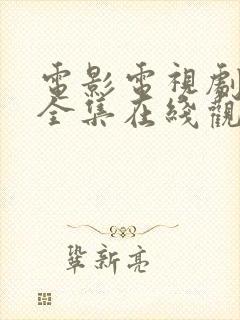 電影電視劇
全集在綫觀
鞏新亮